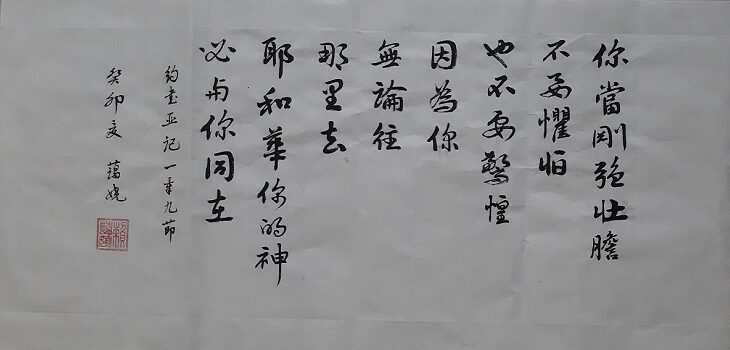 你當剛强壯膽
不要懼怕
也不要驚惶
因為你
無論往
那里去
耶和華你的神
必与你同在
约書亚记一章九節
癸卯夏